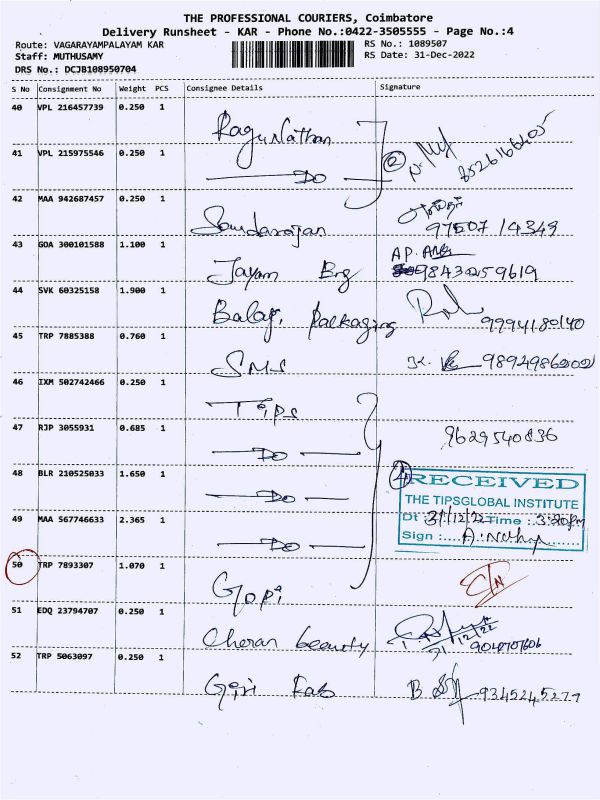 THE PROFESSIONAL COURIERS, Coimbatore
Delivery Runsheet - KAR - Phone No.:0422-3505555 - Page No.:4
Route: VAGARAYAMPALAYAM KAR
RS No.: 1089507
Staff: MUTHUSAMY
RS Date: 31-Dec-2022
DRS No.: DCJB108950704
S No Consignment No Weight PCS Consignee Details Signature
40 VPL 216457739 0.250 1 Ragunathan
41 VPL 215975546 0.250 1 Do 2
42 MAA 942687457 0.250 1 Soundarajan 97507 14349
43 GOA 300101588 1.100 1 Jayam Brg 9843259619
44 SVK 60325158 1.900 1 Balaji Packaging 9994180140
45 TRP 7885388 0.760 1 SMS
46 IXM 502742466 0.250 1 Tips
47 RJP 3055931 0.685 1 Do 9629540836
48 BLR 210525033 1.650 1 Do 4
RECEIVED
THE TIPSGLOBAL INSTITUTE
49 MAA 567746633 2.365 1 Do
Dt : 31/12/22 Time : 3:20pm
Sign :
50 TRP 7893307 1.070 1 Gopi
51 EDQ 23794707 0.250 1 Cheran beauty 31/12/22
52 TRP 5063097 0.250 1 Giri Fab 9345245277